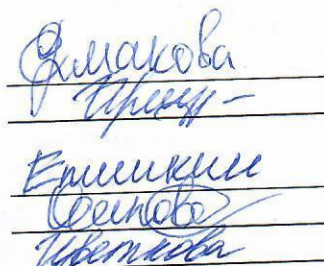 Ермакова
Епишкин
Осипова
Цветкова